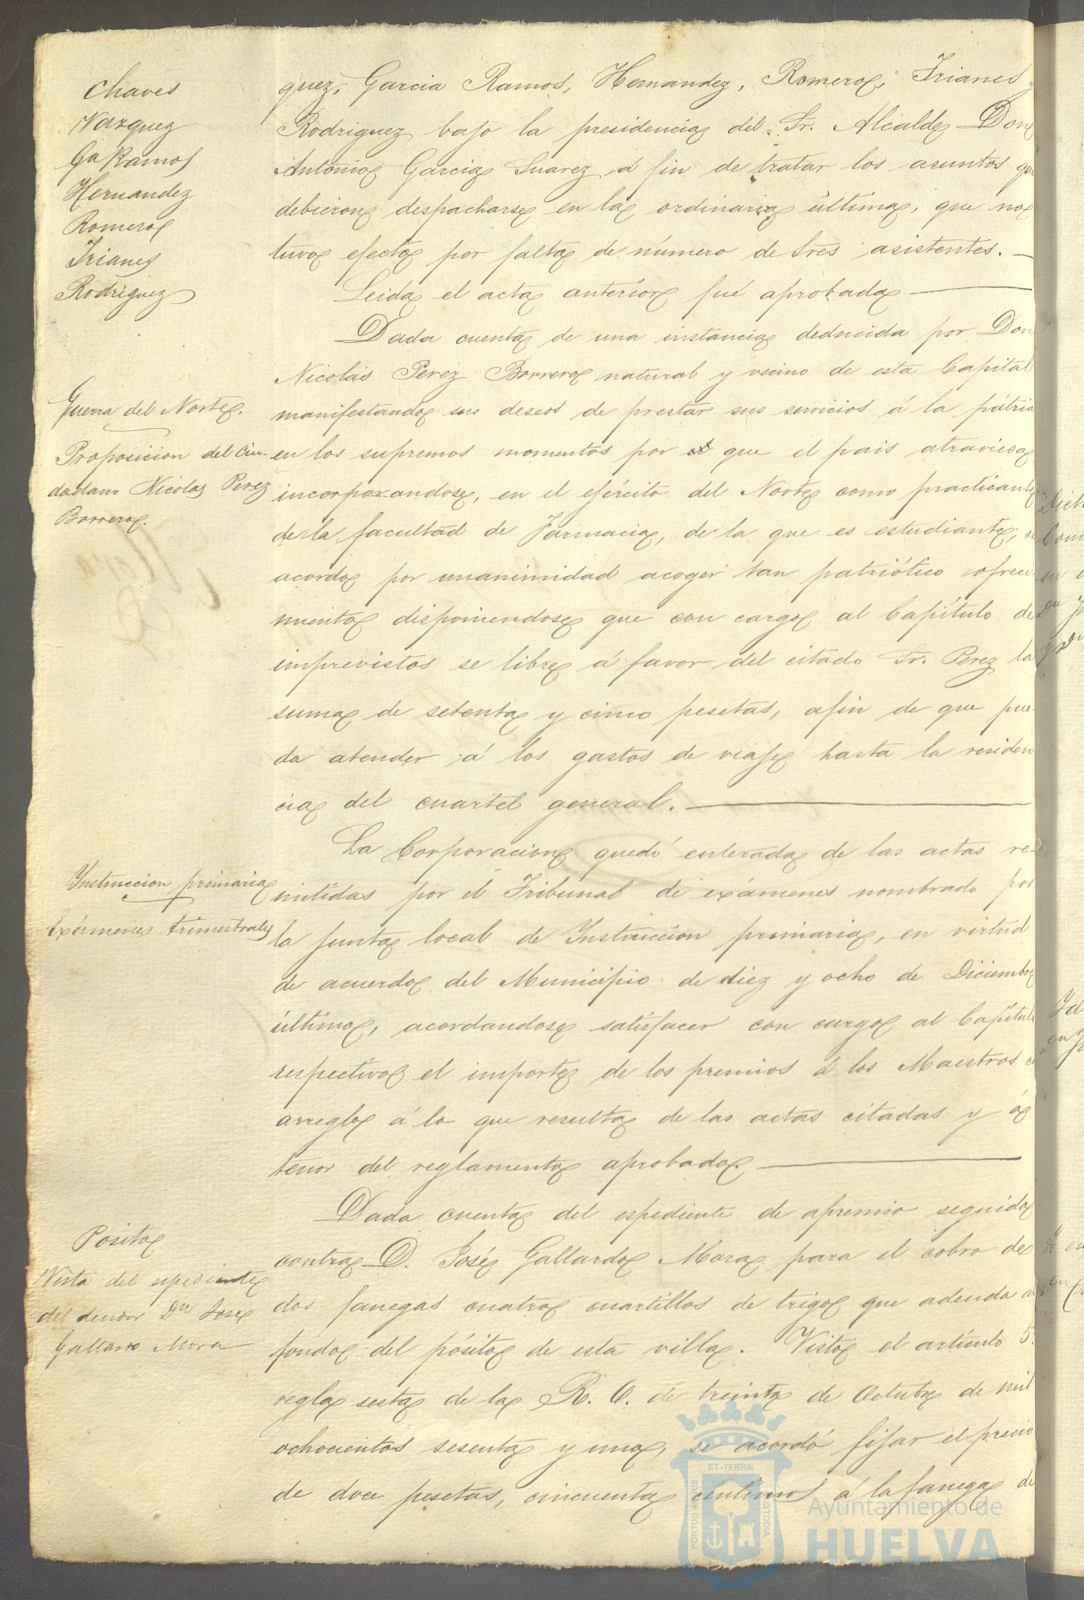 Chaves
Vazquez
Ga Ramos
Hernandez
Romero
Trianes
Rodriguez
quez, Garcia Ramos, Hernandez, Romero, Trianes y
Rodriguez bajo la presidencia del Sr. Alcalde Don
Antonio Garcia Suarez á fin de tratar los asuntos qe
debieron despacharse en la ordinaria última, que no
tuvo efecto por falta de número de Sres asistentes.
Leida el acta anterior fué aprobada
Guerra del Norte.
Proposicion del Ciu-
dadano Nicolas Perez
Borrero.
Dada cuenta de una instancia deducida por Don
Nicolás Perez Borrero natural y vecino de esta Capital
manifestando sus deseos de prestar sus servicios á la pátria
en los supremos momentos por que el pais atraviesa
incorporandose, en el ejército del Norte como practicante
de la facultad de Farmacia, de la que es estudiante, se
acordó por unanimidad acoger tan patriótico ofreci
miento disponiendose que con cargo al Capítulo de
imprevistos se libre á favor del citado Sr. Perez la
suma de setenta y cinco pesetas, afin de que pue
da atender á los gastos de viaje hasta la residen
cia del cuartel general.
Instruccion primaria
Exámenes trimestrales
La Corporacion quedó enterada de las actas re-
mitidas por el Tribunal de exámenes nombrado por
la junta local de Instruccion primaria, en virtud
de acuerdo del Municipio de diez y ocho de Diciembre
último, acordandose satisfacer con cargo al Capítulo
respectivo el importe de los premios á los Maestros
arreglo á lo que resulta de las actas citadas y á
tenor del reglamento aprobado.
Posito
Vista del espediente
del deudor Dn José
Gallardo Mora
Dada cuenta del espediente de apremio seguido
contra D. José Gallardo Mora para el cobro de
dos fanegas cuatro cuartillos de trigo que adeuda al
fondo del pósito de esta villa. Visto el artículo 5.
regla sesta de la R. O. de treinta de Octubre de mil
ochocientos sesenta y uno, se acordó fijar el precio
de doce pesetas, cincuenta centimos á la fanega de
Ayuntamiento de
HUELVA
PORTUS MARIS
ET TERRÆ
CUSTODIA